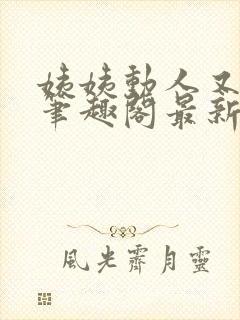 姨姨動人又
筆趣閣最新
風光霽月靈